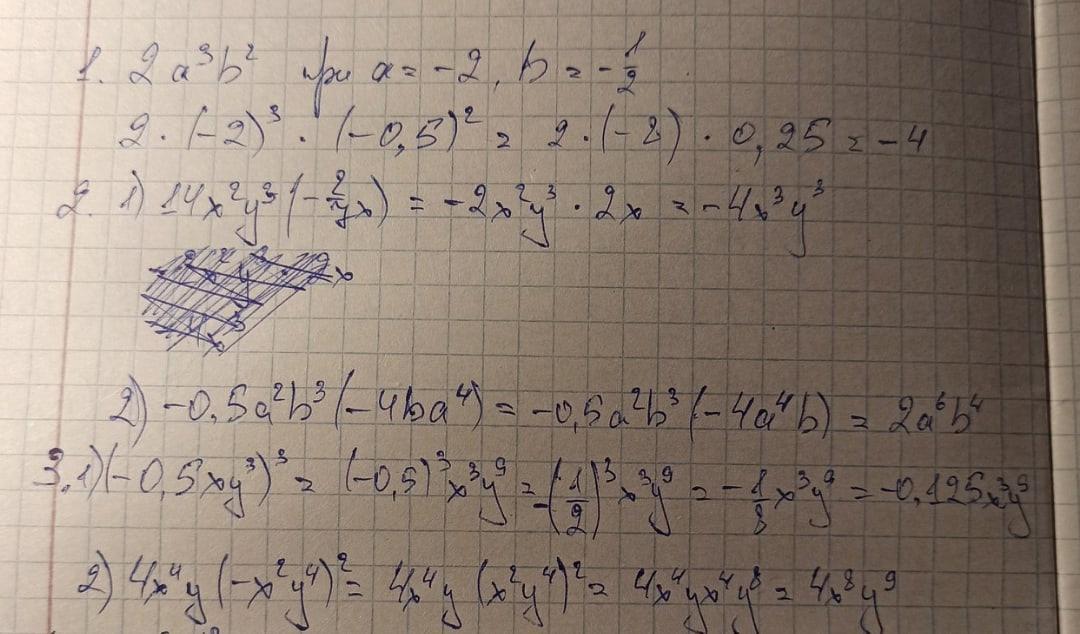 1. 2a³b² при a = -2, b = -1/2
2 · (-2)³ · (-0,5)² = 2 · (-8) · 0,25 = -4
2. 1) 14x²y³(-2/7x) = -2x²y³ · 2x = -4x³y³
2) -0,5a²b³(-4ba⁴) = -0,5a²b³(-4a⁴b) = 2a⁶b⁴
3. 1) (-0,5xy³)³ = (-0,5)³x³y⁹ = -(1/2)³x³y⁹ = -1/8x³y⁹ = -0,125x³y⁹
2) 4x⁴y(-x²y⁴)² = 4x⁴y(x²y⁴)² = 4x⁴yx⁴y⁸ = 4x⁸y⁹